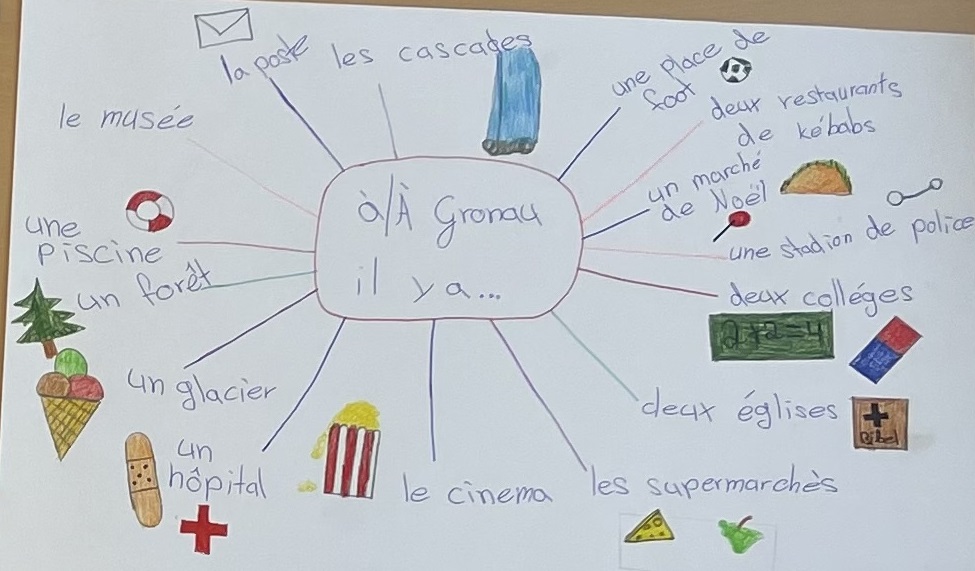 la poste
les cascades
une place de
foot
deux restaurants
de kébabs
le musée
un marché
de Noël
à/À Gronau
il y a...
une
piscine
une stadion de police
un forêt
deux colléges
2+2=4
un glacier
deux églises
Bibel
un
hôpital
le cinema
les supermarchès